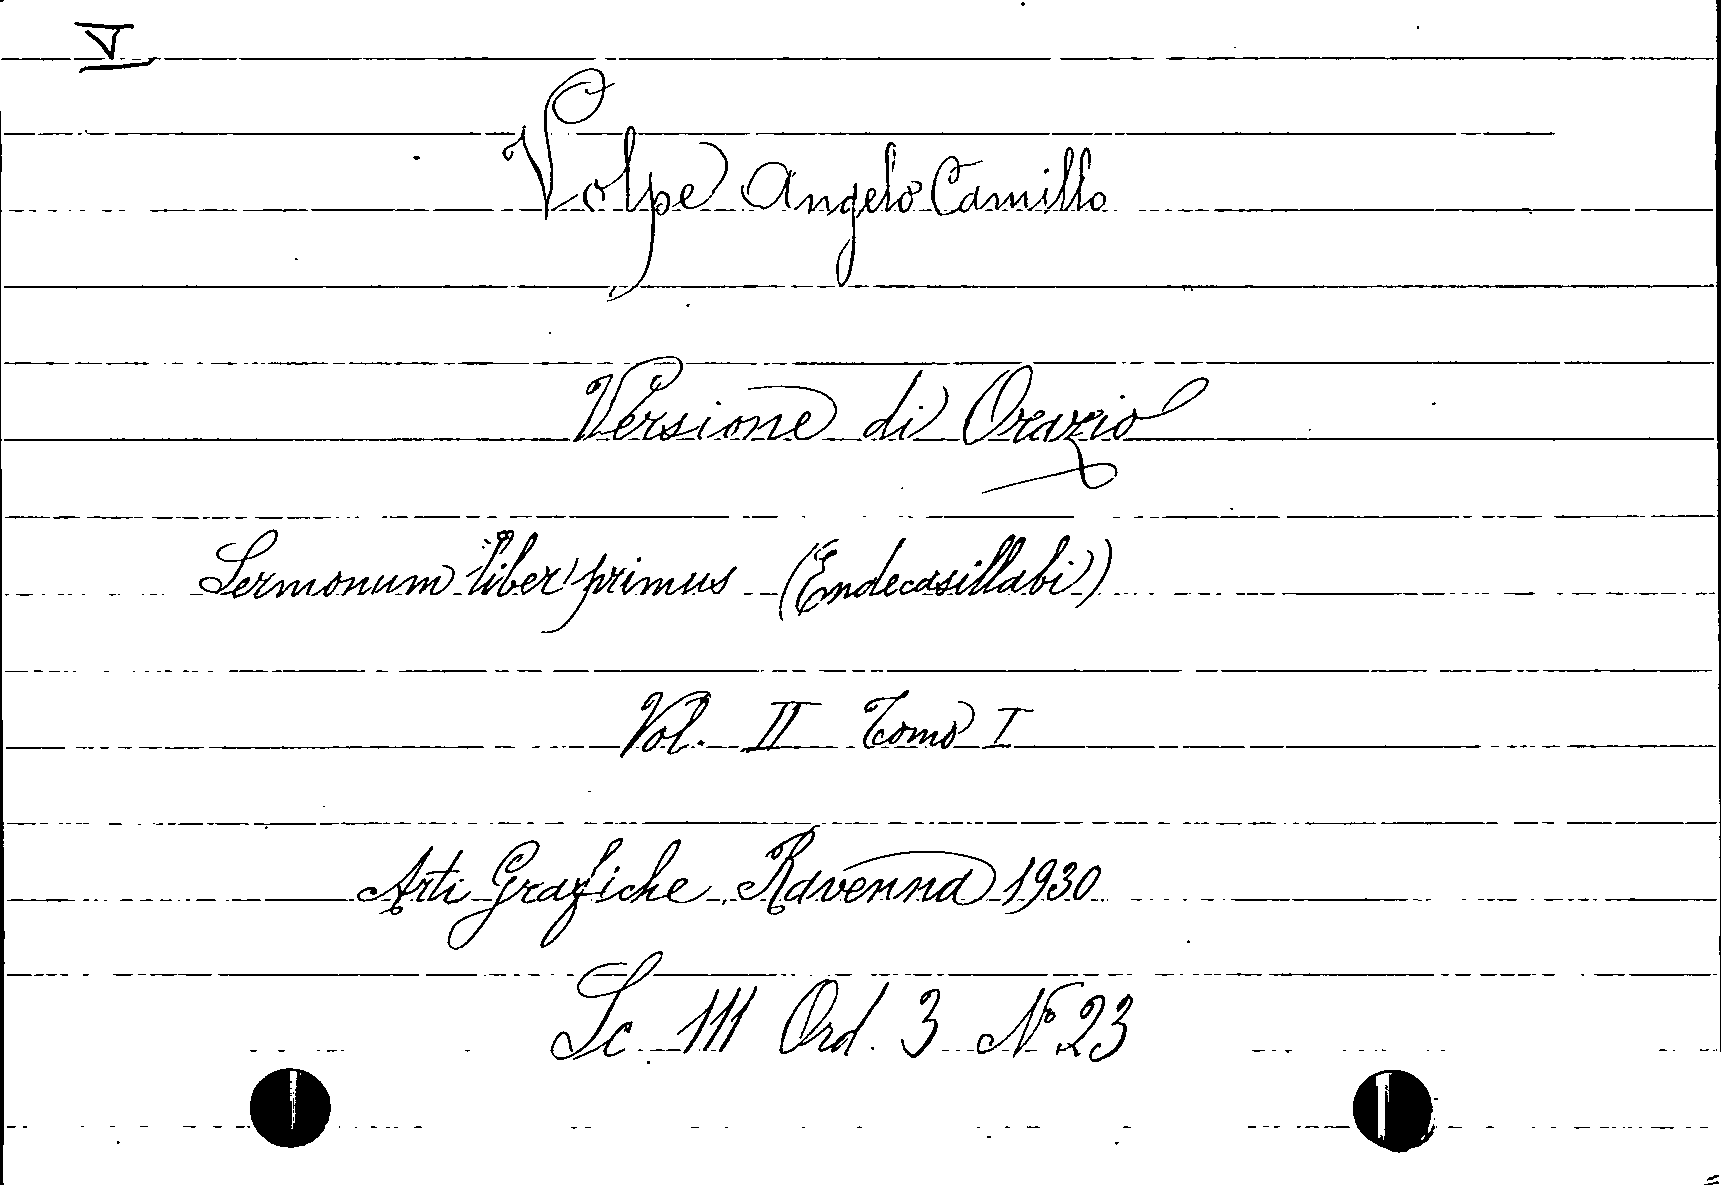 V
Volpe Angelo Camillo
Versione di Orazio
Sermonum liber primus (Endecasillabi)
Vol. II Tomo I
Arti Grafiche Ravenna 1930
Sc 111 Ord. 3 N° 23